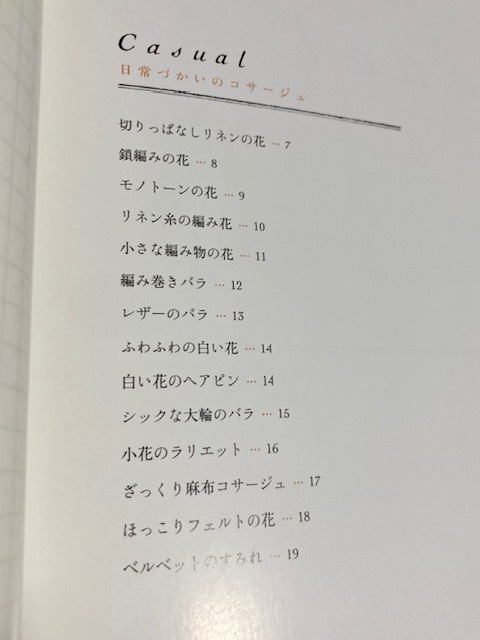 Casual
日常づかいのコサージュ
切りっぱなしリネンの花 … 7
鎖編みの花 … 8
モノトーンの花 … 9
リネン糸の編み花 … 10
小さな編み物の花 … 11
編み巻きバラ … 12
レザーのバラ … 13
ふわふわの白い花 … 14
白い花のヘアピン … 14
シックな大輪のバラ … 15
小花のラリエット … 16
ざっくり麻布コサージュ … 17
ほっこりフェルトの花 … 18
ベルベットのすみれ … 19